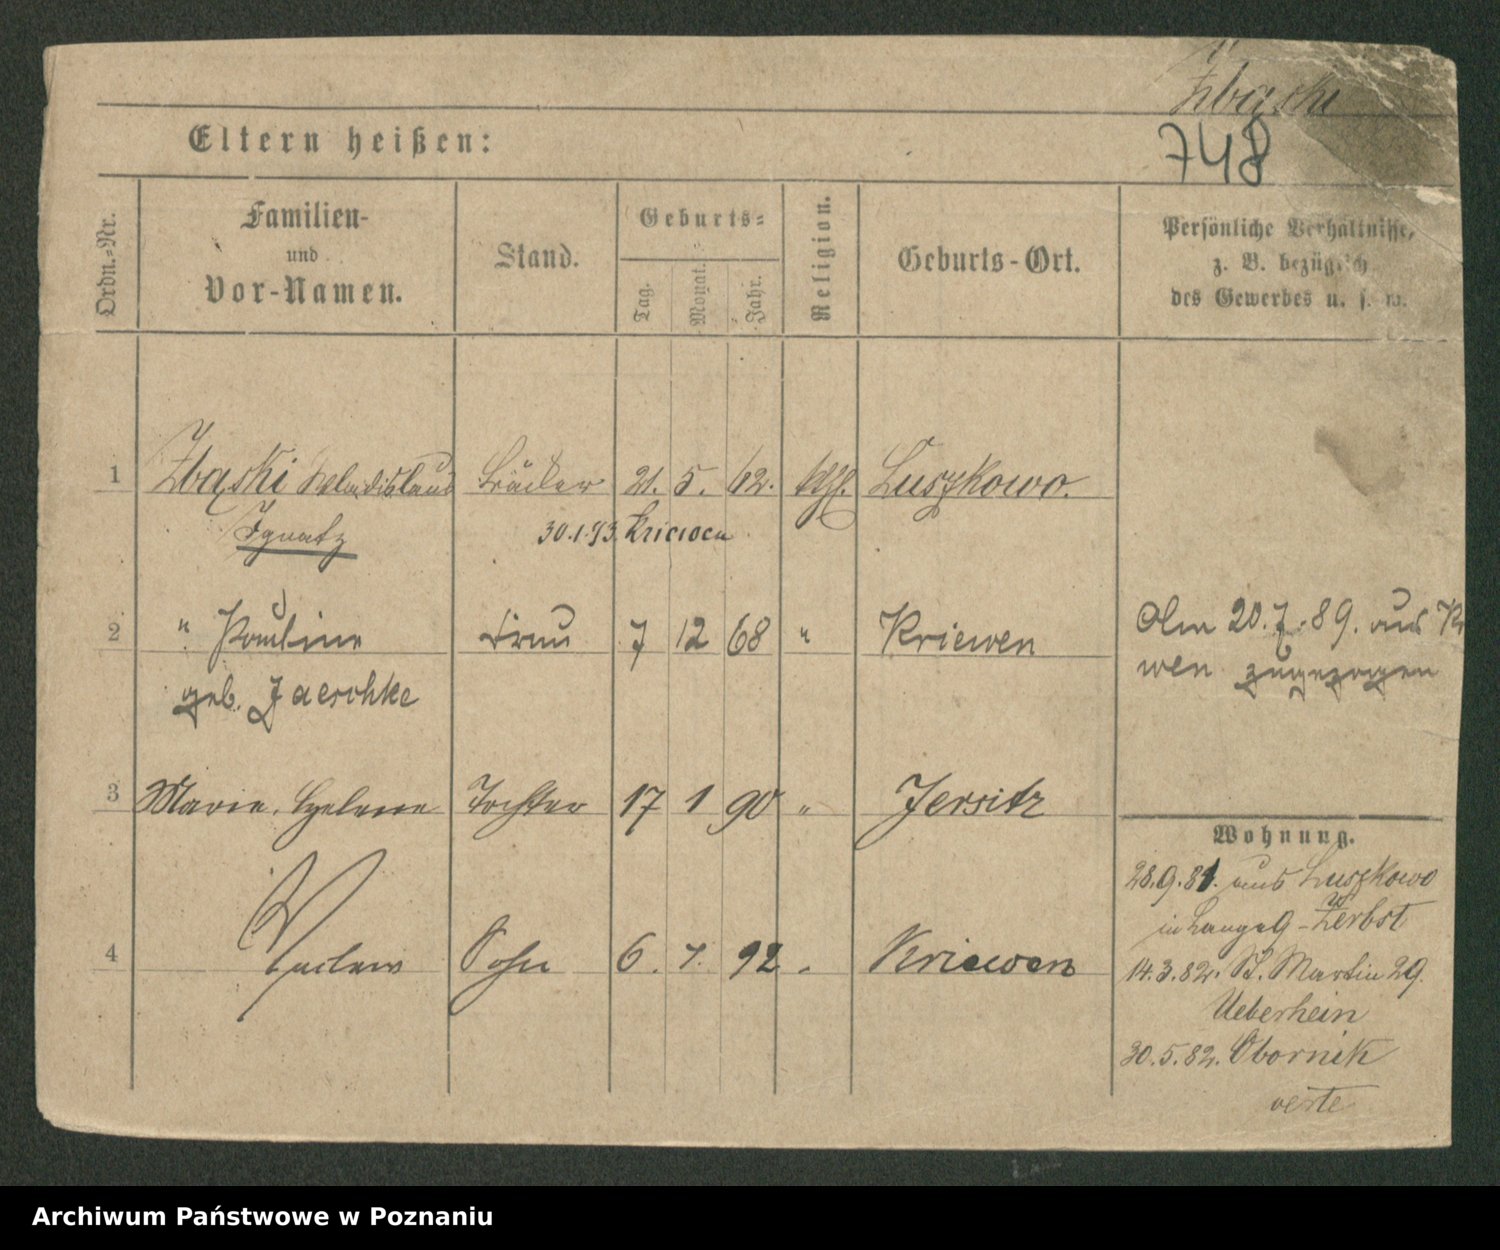 Zbąski
748
Eltern heißen:
Ordn.-Nr.
Familien-
und
Vor-Namen.
Stand.
Geburts-
Tag.
Monat.
Jahr.
Religion.
Geburts-Ort.
Persönliche Verhältnisse,
z. B. bezüglich
des Gewerbes u. s. w.
1 Zbąski Wladislaus Bäcker 21. 5. 62. kth. Luszkowo.
Ignatz 30.1.93. Kriewen
2 " Pauline Frau 7 12 68 " Kriewen
geb. Jaeschke
Am 20.7.89. aus Kr
wen zugezogen
3 Marie, Helene Tochter 17 1 90 " Jersitz
4 Waclaw Sohn 6. 7. 92 " Kriewen
Wohnung.
28.9.81. aus Luszkowo
in Langeg - Zerbst
14.3.82. St. Martin 29.
Ueberhein
30.5.82. Obornik
verte
Archiwum Państwowe w Poznaniu